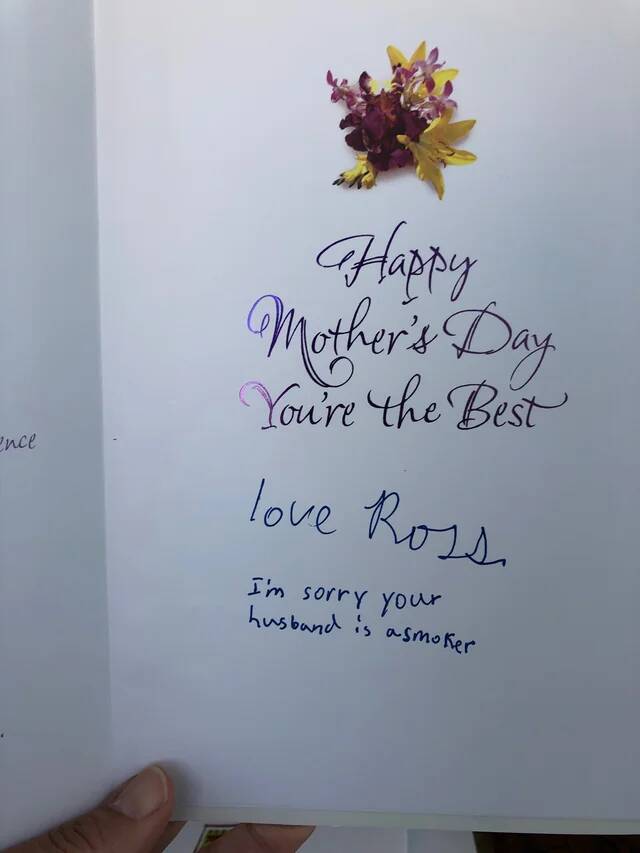 ence
Happy
Mother's Day
You're the Best
love Ross
I'm sorry your
husband is asmoker